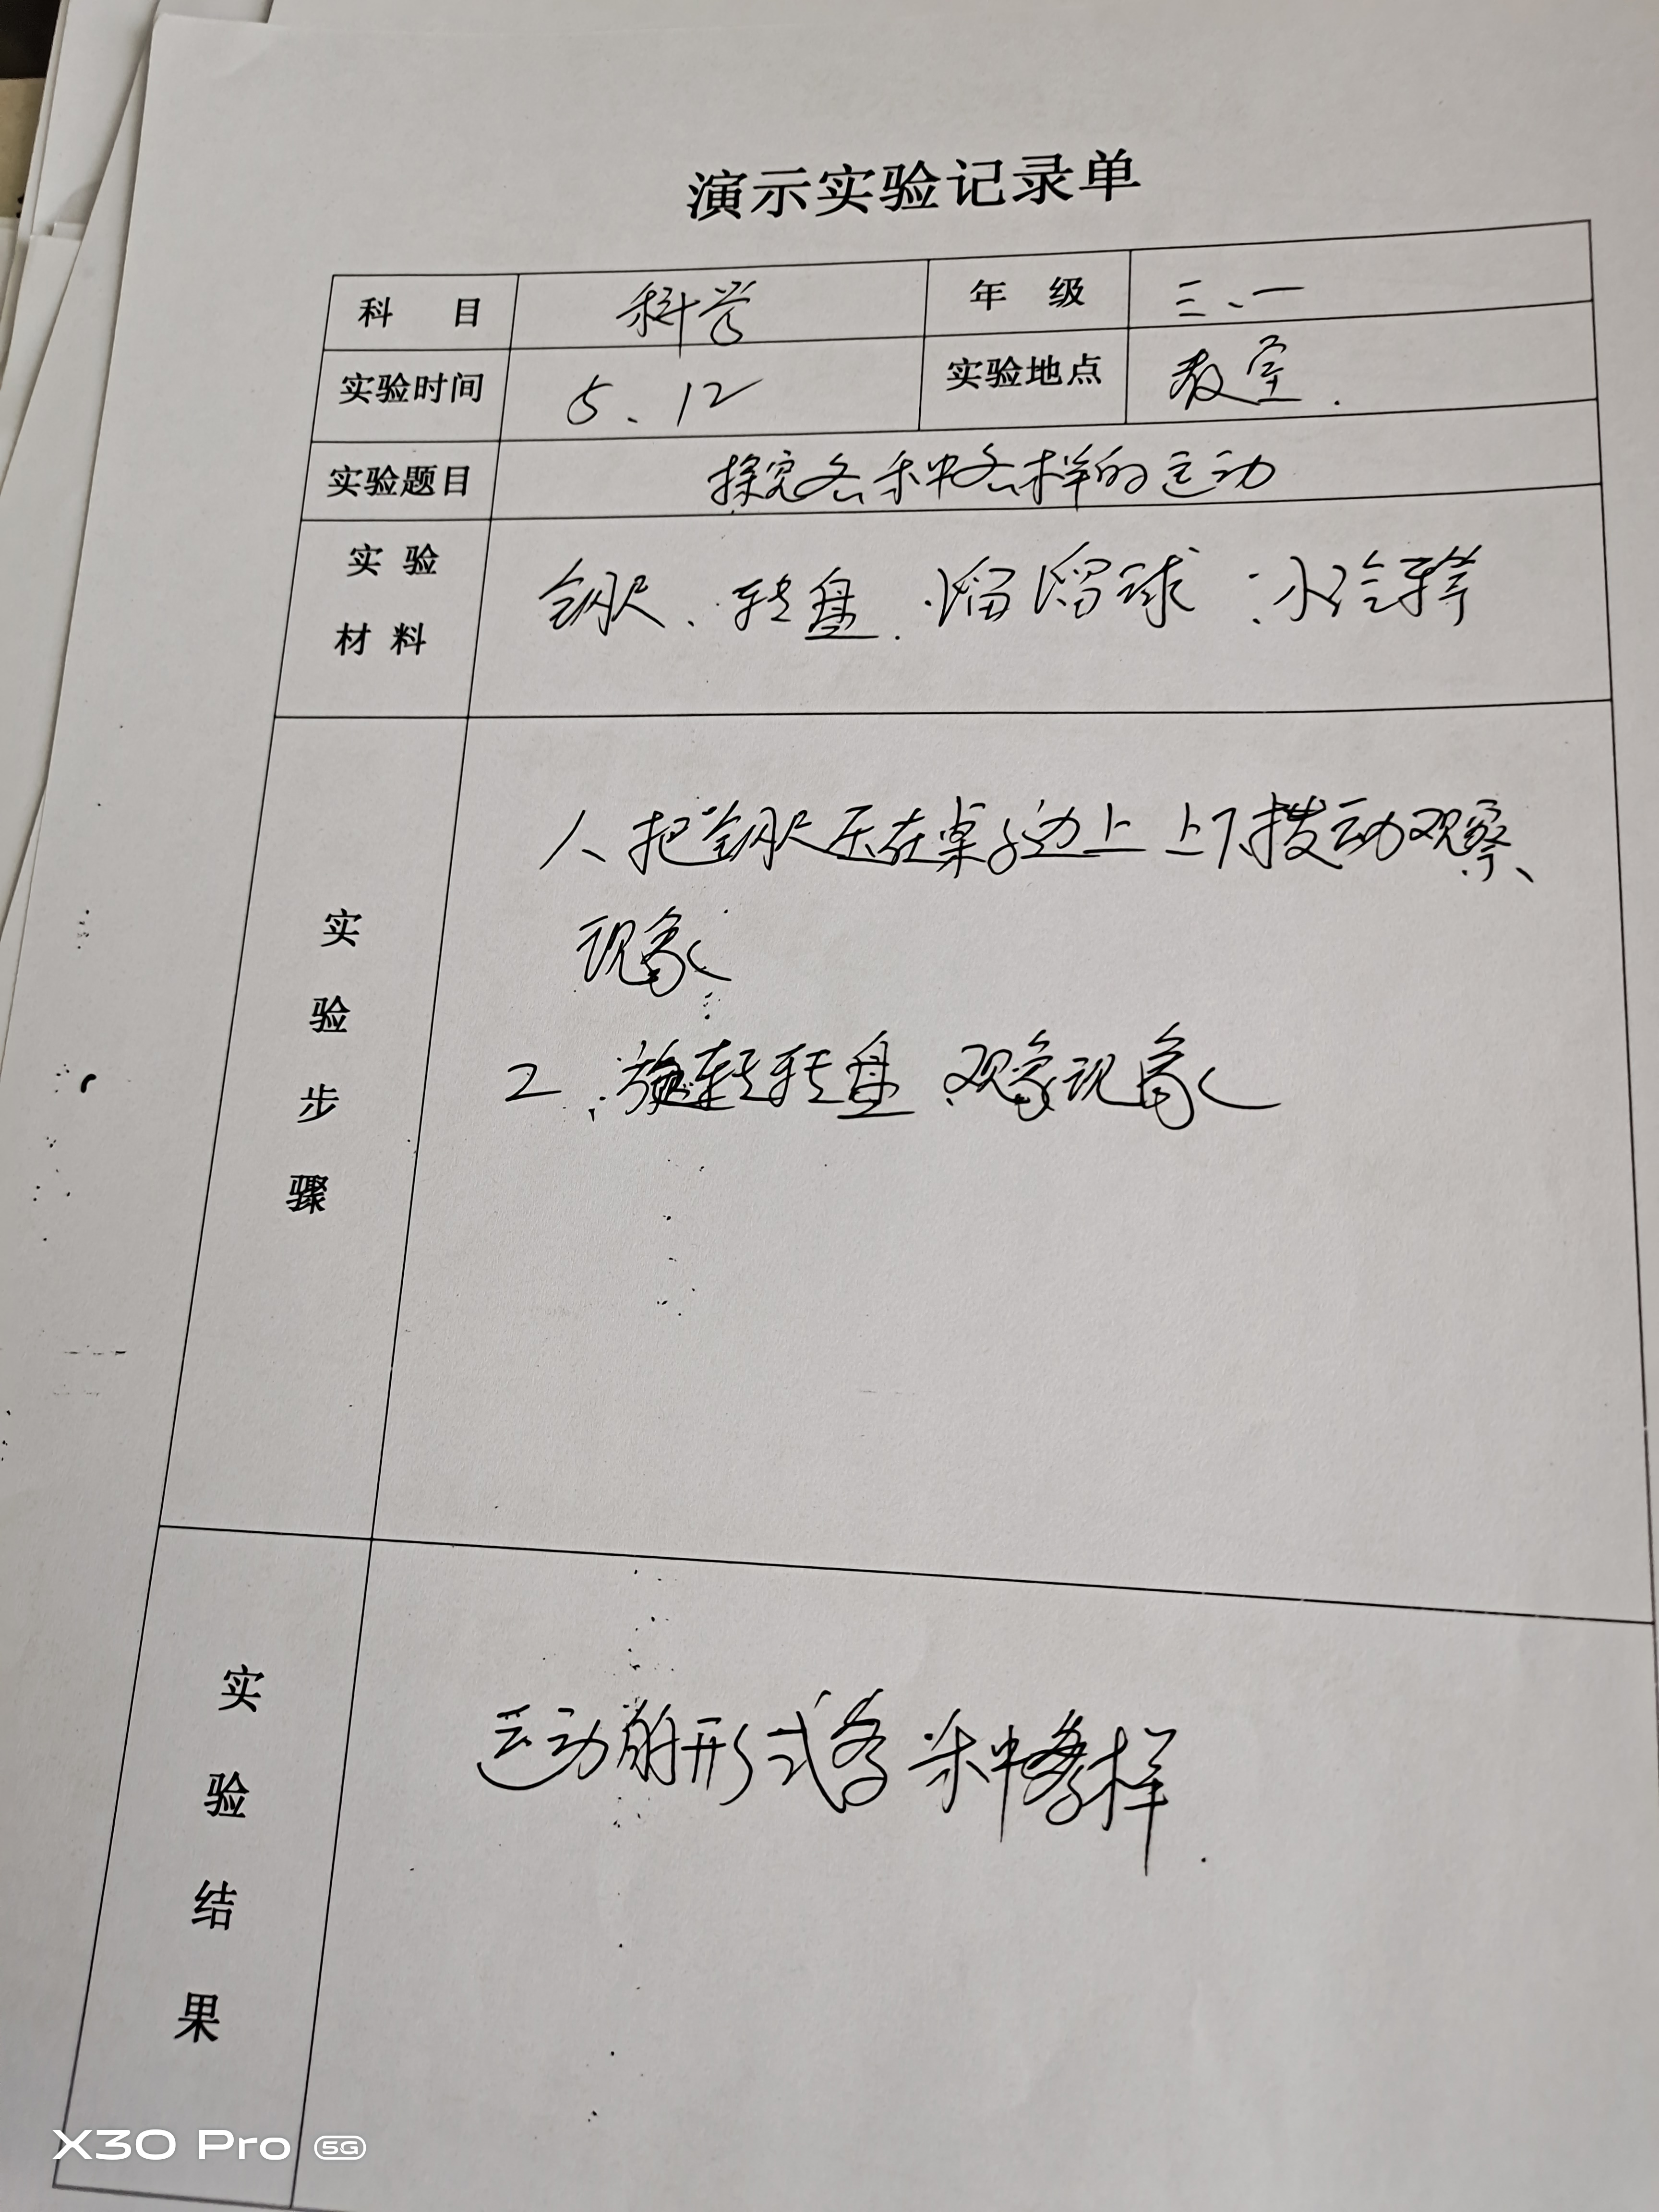 演示实验记录单
科目 科学 年级 三、一
实验时间 5、12 实验地点 教室.
实验题目 探究各种各样的运动
实验 钢尺、转盘、溜溜球、小汽车等
材料
1、把钢尺压在桌子边上上下拨动观察、
现象
实验步骤
2、旋转转盘、观象现象
运动的形式各种各样.
实验结果
X30 Pro 5G